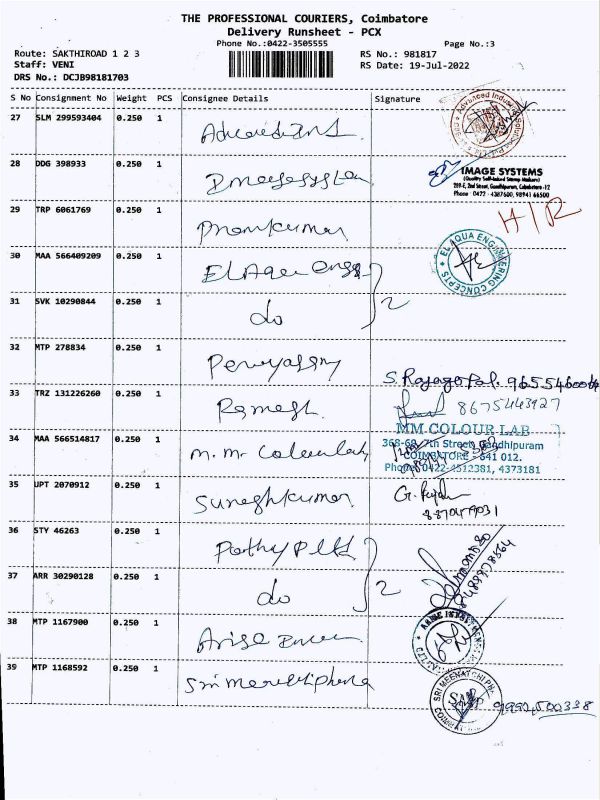 THE PROFESSIONAL COURIERS, Coimbatore
Delivery Runsheet - PCX
Phone No.:0422-3505555
Page No.:3
Route: SAKTHIROAD 1 2 3
RS No.: 981817
Staff: VENI
RS Date: 19-Jul-2022
DRS No.: DCJB98181703
S No Consignment No Weight PCS Consignee Details Signature
27 SLM 299593404 0.250 1
28 DDG 398933 0.250 1
IMAGE SYSTEMS
(Quality Self-Inked Stamp Makers)
289-E, 2nd Street, Gandhipuram, Coimbatore -12
Phone : 0422 - 4387600, 98941 66500
29 TRP 6061769 0.250 1 Premkumar
H/R
30 MAA 566409209 0.250 1 El Aqua Engg
EL AQUA ENGINEERING CONCEPTS
31 SVK 10290844 0.250 1 do 2
32 MTP 278834 0.250 1
S. Rajagopal.
33 TRZ 131226260 0.250 1 Ramesh
8675443927
34 MAA 566514817 0.250 1 M. M. Colour Lab
MM COLOUR LAB
368-68, 7th Street, Gandhipuram
COIMBATORE - 641 012.
Phone: 0422-4512381, 4373181
35 UPT 2070912 0.250 1 Sureshkumar
36 STY 46263 0.250 1
37 ARR 30290128 0.250 1 do 2
38 MTP 1167900 0.250 1 Arise
39 MTP 1168592 0.250 1
SRI MEENATCHI PH